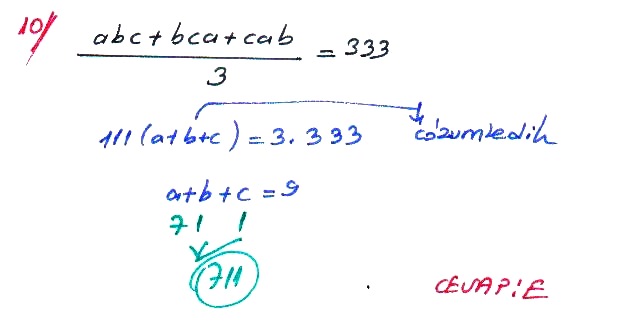 10/
abc + bca + cab
3
= 333
111 (a+b+c) = 3. 333 çözümledik
a+b+c = 9
7 1 1
711
CEVAP: E